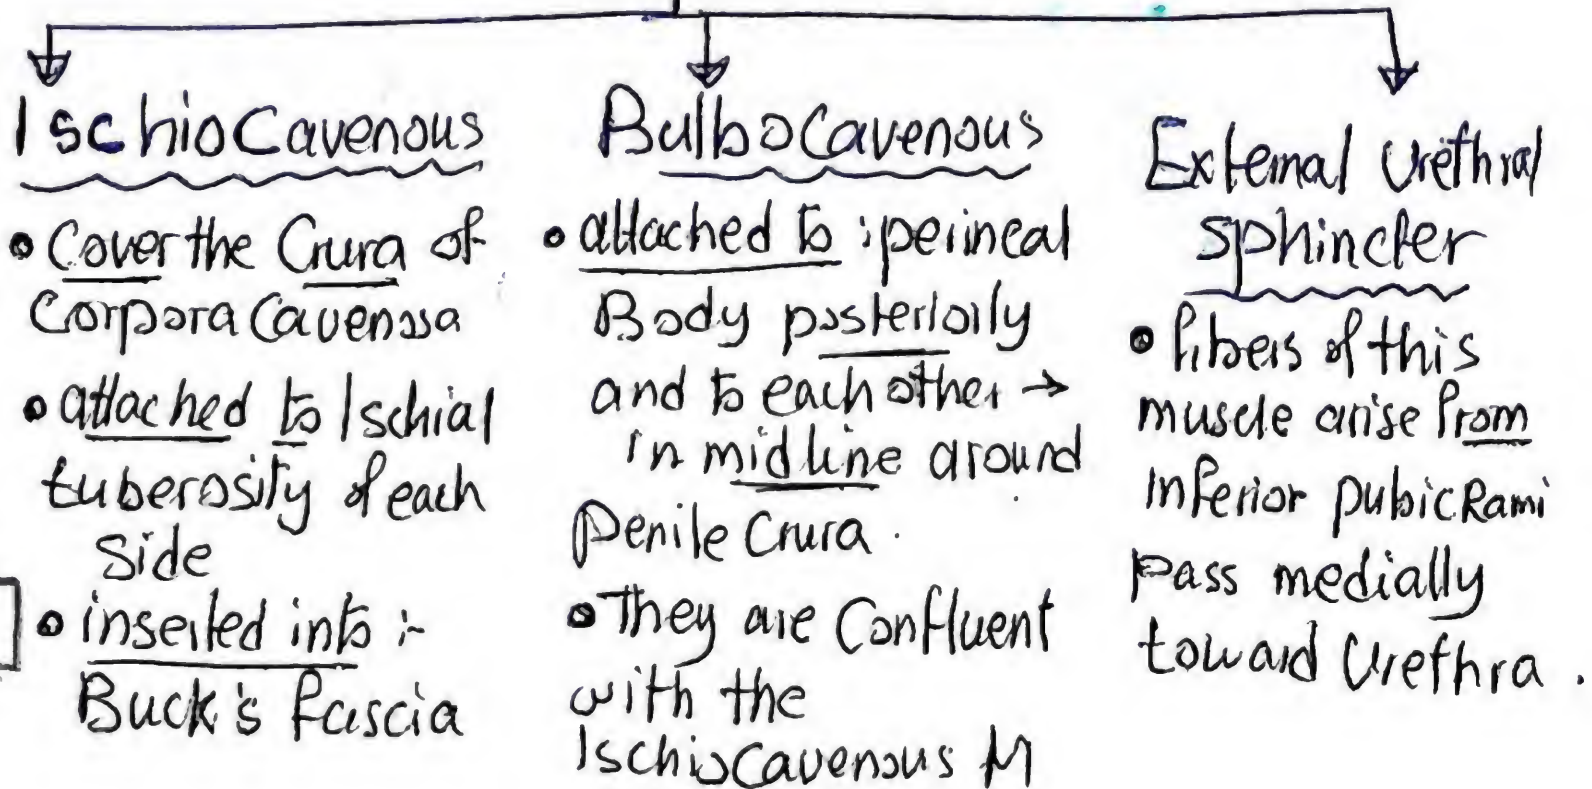 IschioCavenous
• Cover the Crura of
Corpora Cavenosa
• attached to Ischial
tuberosity of each
Side
• inserted into :-
Buck's fascia
BulboCavenous
• attached to : perineal
Body posteriorly
and to each other →
in midline around
Penile Crura.
• They are Confluent
with the
IschioCavenous M
External Urethral
Sphincter
• fibers of this
muscle arise from
inferior pubic Rami
Pass medially
toward Urethra.